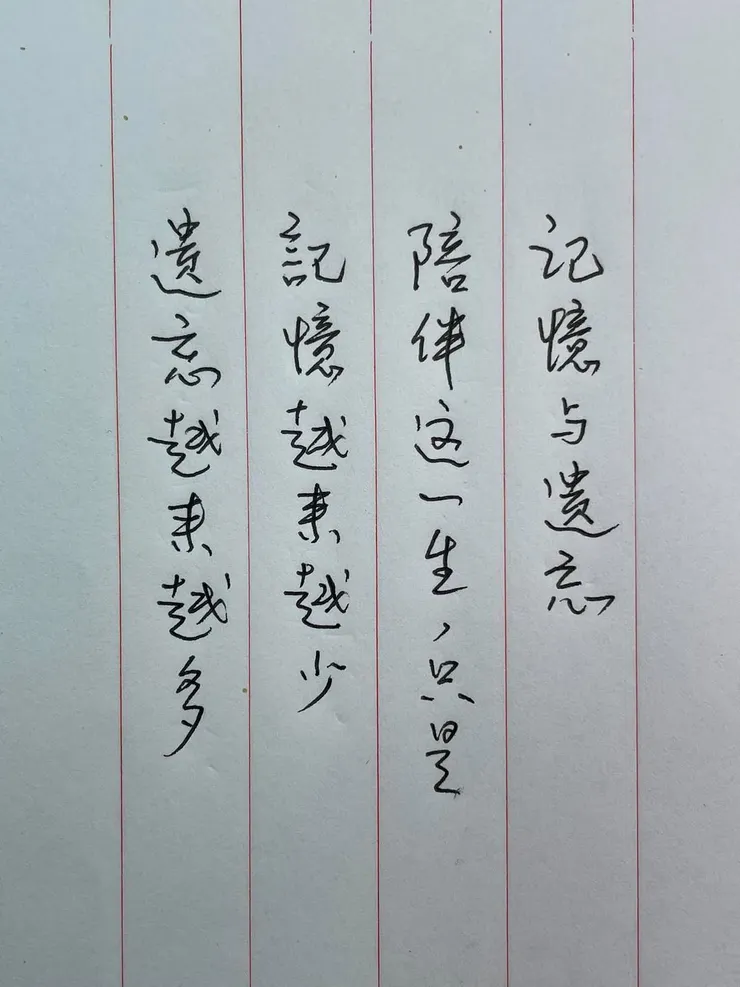 记憶与遗忘
陪伴这一生，只是
記憶越来越少
遗忘越来越多